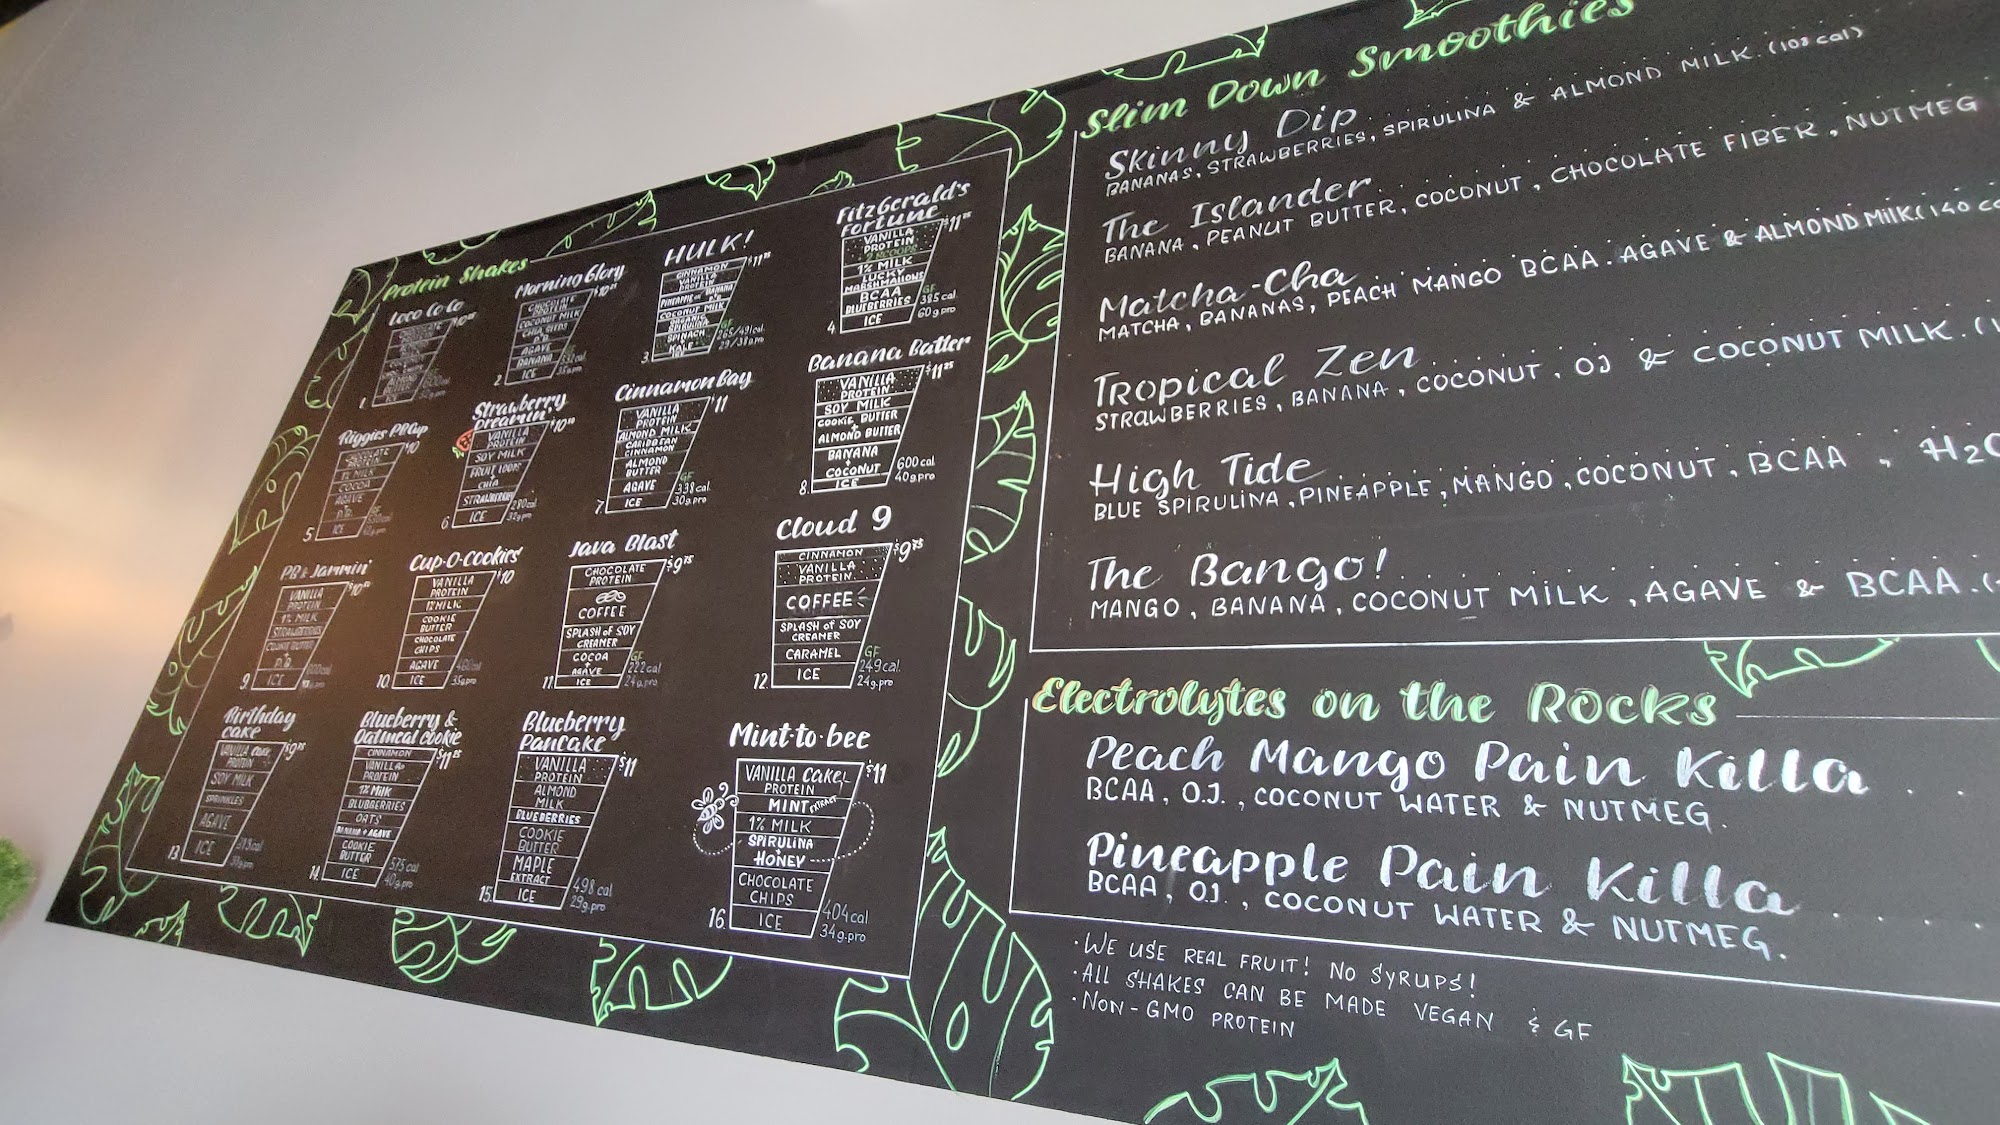 Protein Shakes
Loco CoCo
1.
Morning Glory
CHOCOLATE
PROTEIN
COCONUT MILK
CHIA SEEDS
P.B.
AGAVE
BANANA
ICE
2.
HULK!
$11
CINNAMON
VANILLA
PROTEIN
PINEAPPLE or BANANA
COCONUT MILK
ORGANIC
SPIRULINA
SPINACH
KALE
GF
265/491cal.
29/38g.pro
3.
FitzGerald's
Fortune
$11 25
VANILLA
PROTEIN
2 SCOOPS
1% MILK
LUCKY
MARSHMALLOWS
BCAA
BLUEBERRIES
ICE
GF
385cal
60g.pro
4.
PBCup
$10
CHOCOLATE
PROTEIN
1% MILK
COCOA
AGAVE
P.B.
ICE
5.
Strawberry
Dreamin'
VANILLA
PROTEIN
SOY MILK
FRUIT LOOPS
+
CHIA
STRAWBERRY
ICE
280cal
32g.pro
6.
Cinnamon Bay
$11
VANILLA
PROTEIN
ALMOND MILK
CARIBBEAN
CINNAMON
ALMOND
BUTTER
AGAVE
ICE
GF
338cal.
30g.pro
7.
Banana Batter
$11 25
VANILLA
PROTEIN
SOY MILK
COOKIE BUTTER
+
ALMOND BUTTER
BANANA
+
COCONUT
ICE
600cal
40g.pro
8.
PB & Jammin'
VANILLA
PROTEIN
1% MILK
STRAWBERRIES
COOKIE BUTTER
+
P.B.
ICE
9.
Cup-O-Cookies
$10
VANILLA
PROTEIN
1% MILK
COOKIE
BUTTER
CHOCOLATE
CHIPS
AGAVE
ICE
35g.pro
10.
Java Blast
$9 75
CHOCOLATE
PROTEIN
COFFEE
SPLASH of SOY
CREAMER
COCOA
+
AGAVE
ICE
GF
222cal
24g.pro
11.
Cloud 9
$9 75
CINNAMON
VANILLA
PROTEIN
COFFEE
SPLASH of SOY
CREAMER
CARAMEL
ICE
GF
249cal.
24g.pro
12.
Birthday
Cake
$9 75
VANILLA Cake
PROTEIN
SOY MILK
SPRINKLES
AGAVE
ICE
13.
Blueberry &
Oatmeal Cookie
$11 25
CINNAMON
VANILLA
PROTEIN
1% Milk
BLUEBERRIES
OATS
BANANA + AGAVE
COOKIE
BUTTER
ICE
575cal
40g.pro
14.
Blueberry
Pancake
$11
VANILLA
PROTEIN
ALMOND
MILK
BLUEBERRIES
COOKIE
BUTTER
MAPLE
EXTRACT
ICE
498cal
29g.pro
15.
Mint-to-bee
$11
VANILLA Cake
PROTEIN
MINT EXTRACT
1% MILK
SPIRULINA
+
HONEY
CHOCOLATE
CHIPS
ICE
404cal
34g.pro
16.
Slim Down Smoothies
Skinny Dip
BANANAS, STRAWBERRIES, SPIRULINA & ALMOND MILK. (108 cal)
The Islander
BANANA, PEANUT BUTTER, COCONUT, CHOCOLATE FIBER, NUTMEG
Matcha-Cha
MATCHA, BANANAS, PEACH MANGO BCAA. AGAVE & ALMOND MILK. (140
Tropical Zen
STRAWBERRIES, BANANA, COCONUT, OJ & COCONUT MILK.
High Tide
BLUE SPIRULINA, PINEAPPLE, MANGO, COCONUT, BCAA, H2O
The Bango!
MANGO, BANANA, COCONUT MILK, AGAVE & BCAA.
Electrolytes on the Rocks
Peach Mango Pain Killa
BCAA, O.J., COCONUT WATER & NUTMEG.
Pineapple Pain Killa
BCAA, O.J., COCONUT WATER & NUTMEG.
• WE USE REAL FRUIT! NO SYRUPS!
• ALL SHAKES CAN BE MADE VEGAN & GF
• NON-GMO PROTEIN